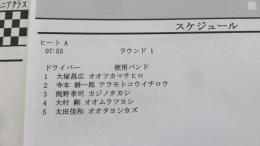 ニアクラス
スケジュール
ヒート A
07:55 ラウンド 1
ドライバー 使用バンド
1 大塚昌広 オオツカマサヒロ
2 寺本 耕一郎 テラモトコウイチロウ
3 梶野孝司 カジノタカシ
4 大村 剛 オオムラツヨシ
5 太田佳和 オオタヨシカズ